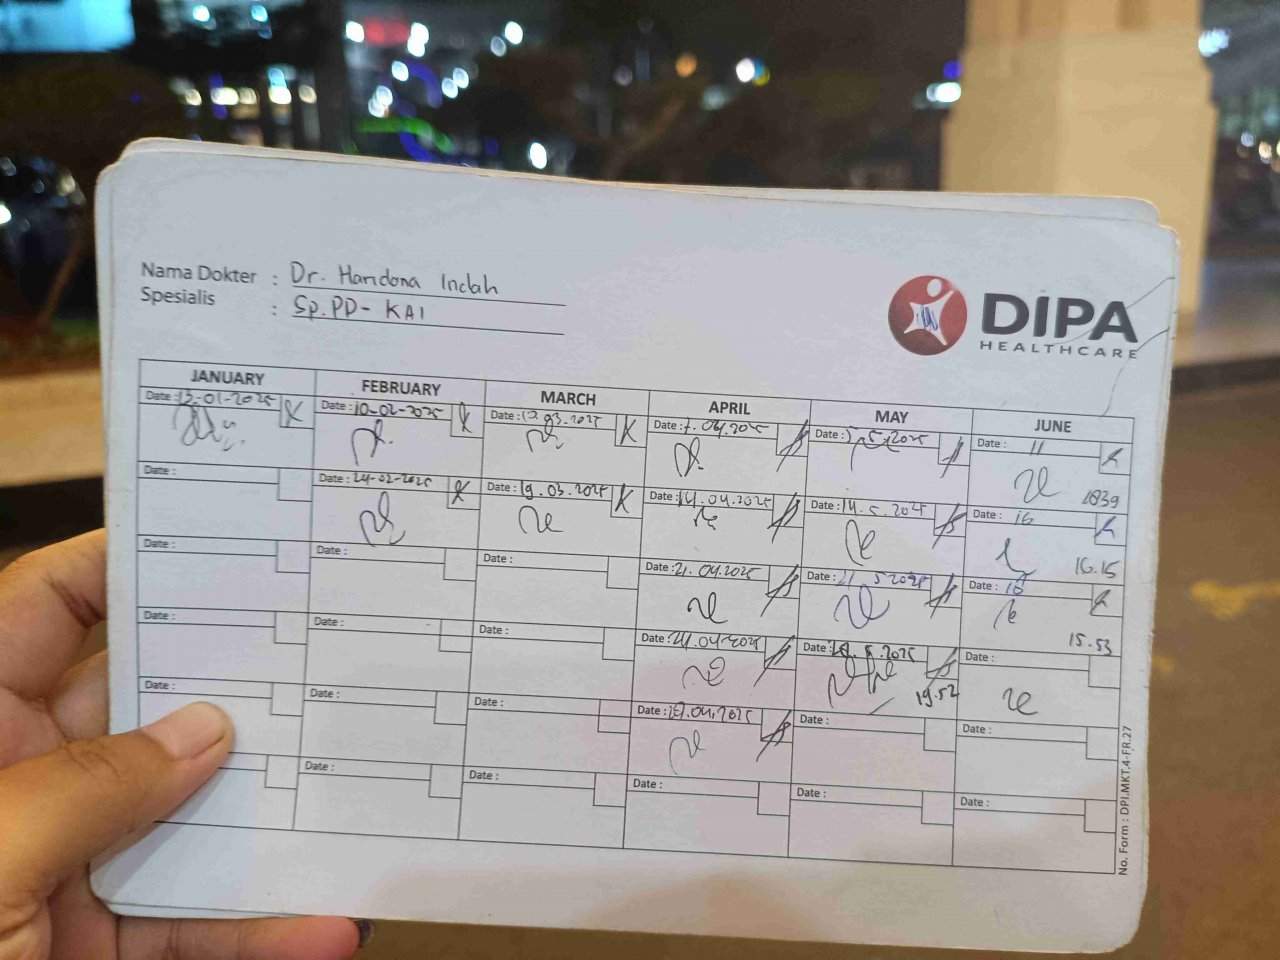 Nama Dokter : Dr. Handona Indah
Spesialis : Sp.PD - KAI
DIPA
HEALTHCARE
JANUARY FEBRUARY MARCH APRIL MAY JUNE
Date : 13-01-2025 Date : 10-02-2025 Date : 12.03.2025 Date : 7.04.2025 Date : 5.5.2025 Date : 11
1839
Date : Date : 24-02-2025 Date : 19.03.2025 Date : 14.04.2025 Date : 14.5.2025 Date : 16
16.15
Date : Date : Date : Date : 21.04.2025 Date : 21 5 2025 Date : 18
15.53
Date : Date : Date : Date : 24.04.2025 Date : 5.2025 Date :
19.52
Date : Date : Date : Date : 29.04.2025 Date : Date :
Date : Date : Date : Date : Date :
No. Form : DPI.MKT.4-FR.27